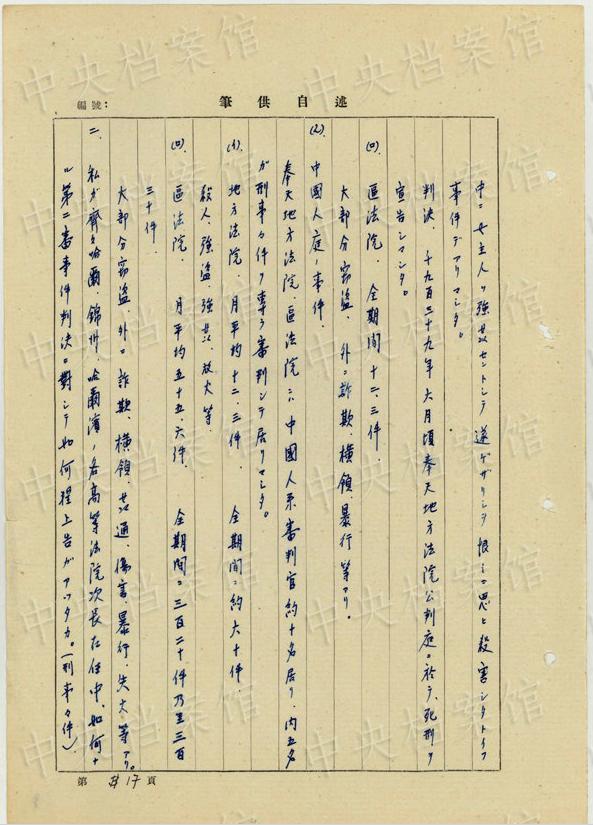 編號：
述自供筆
中ニ女主人ヲ強姦セントシテ遂ゲザリシヲ恨ミニ思ヒ殺害シタトイフ
事件デアリマシタ。
判決、千九百三十九年六月頃奉天地方法院公判庭ニ於テ、死刑ヲ
宣告シマシタ。
(ロ) 區法院、全期間十二、三件
大部分窃盗、外ニ詐欺、橫領、暴行等アリ。
(2) 中國人庭ノ事件、
奉天地方法院、區法院ニハ中國人系審判官約十名居リ、内五名
ガ刑事々件ヲ專ラ審判シテ居リマシタ。
(イ) 地方法院、月平均十二、三件 全期間ニ約六十件、
殺人、強盗、強姦、放火等、
(ロ) 區法院、月平均五十五、六件、全期間ニ三百二十件乃至三百
三十件、
大部分窃盗、外ニ詐欺、橫領、姦通、傷害、暴行、失火等アリ。
二、私ガ齊々哈爾、錦州、哈爾濱ノ各高等法院次長在任中、如何ナ
ル第二審事件判決ニ對シテ如何程上告ガアッタカ。(刑事々件)
第 其17 頁
中央档案馆